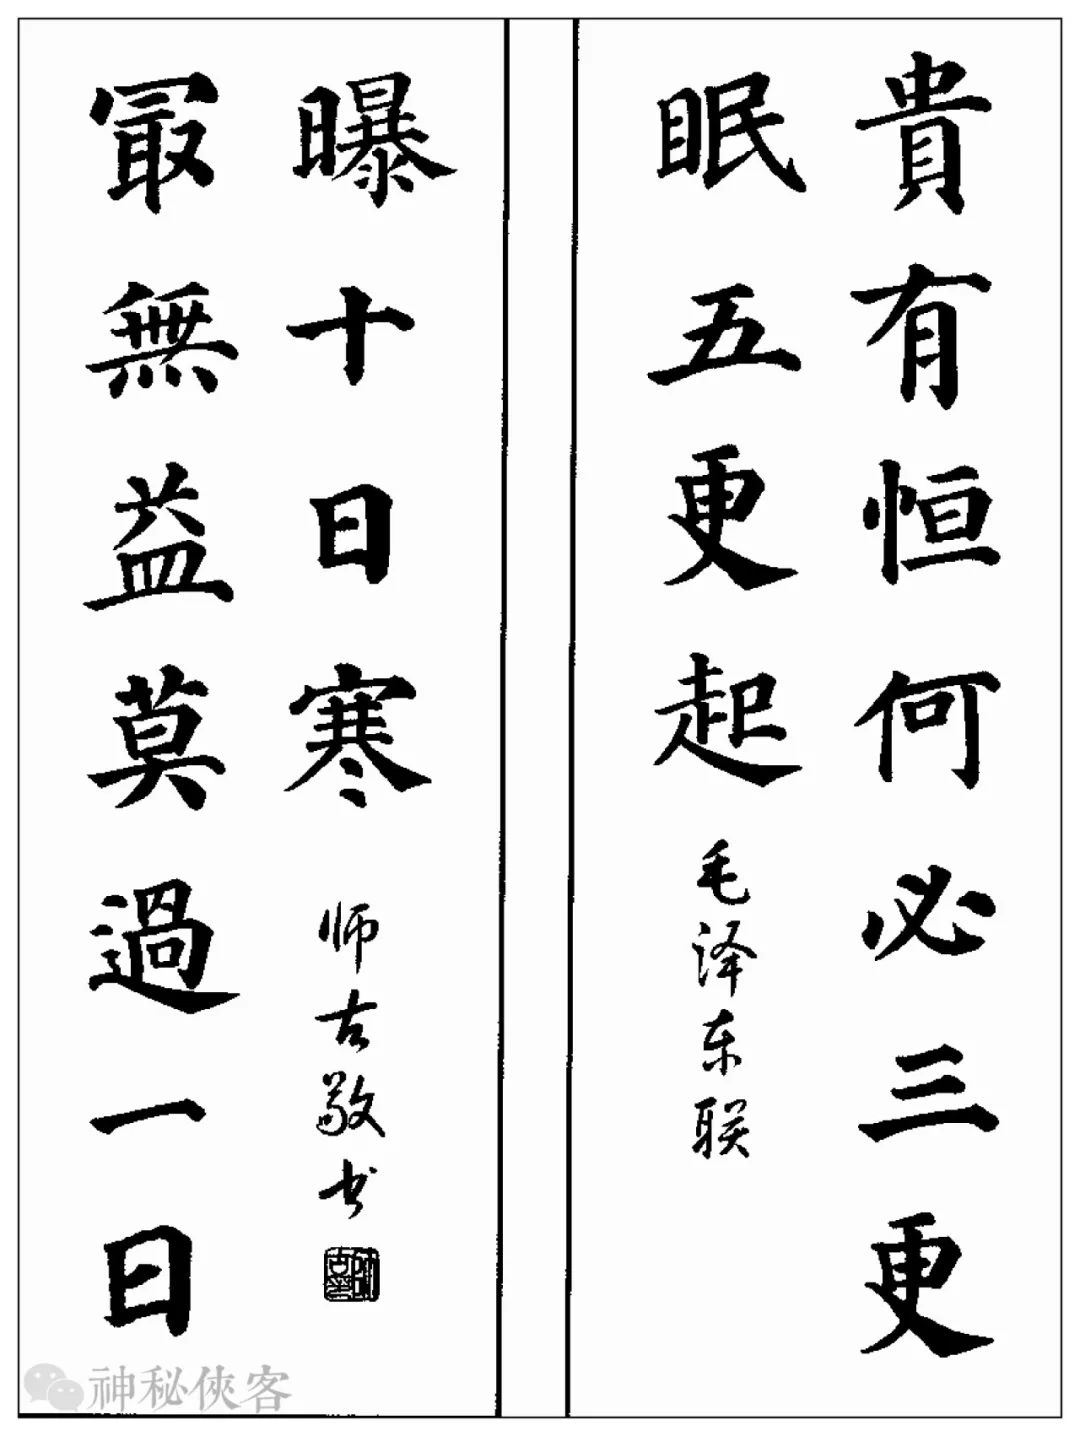 貴有恒何必三更
眠五更起
毛泽东联
最無益莫過一日
曝十日寒
师古敬书
神秘俠客